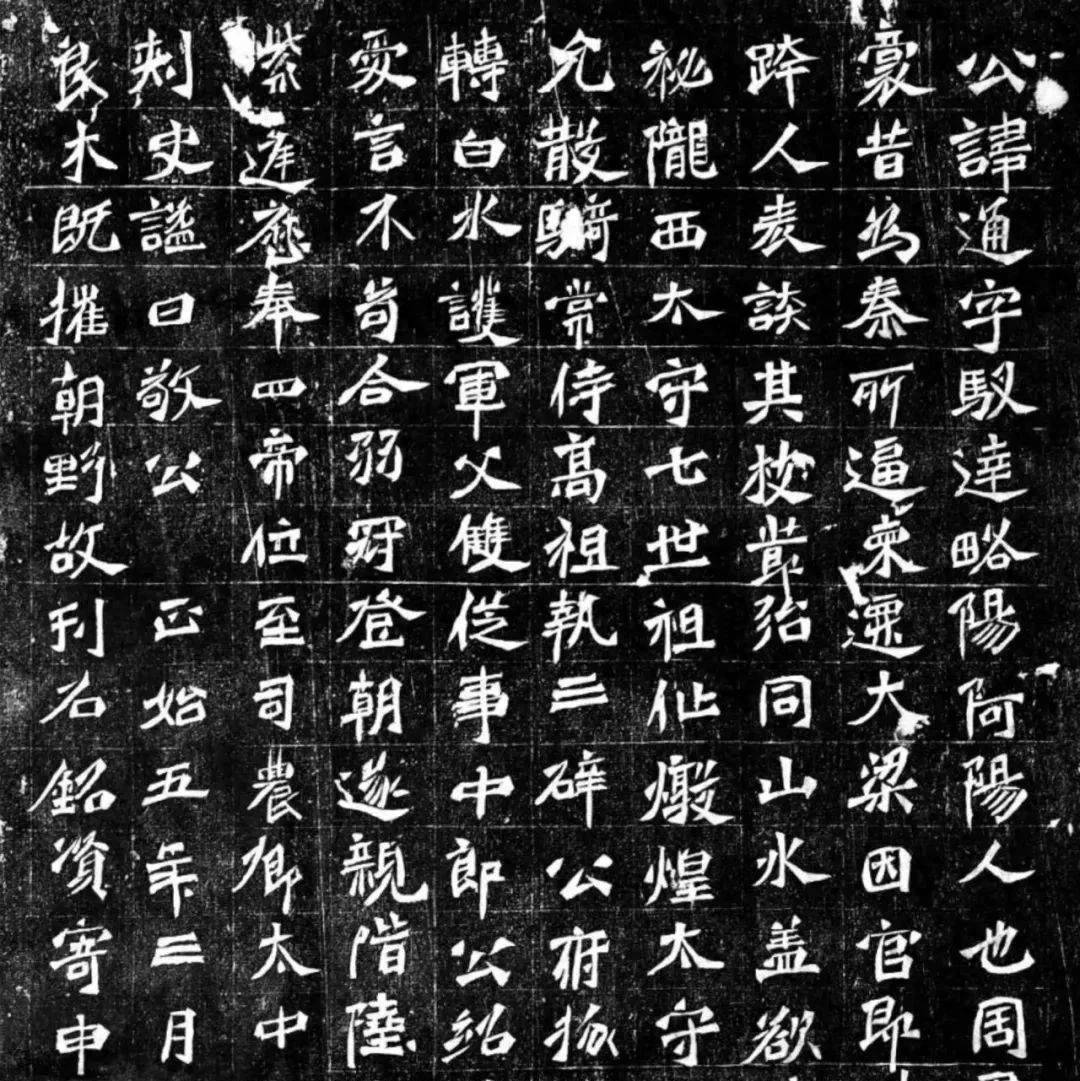 公諱通字馭達略陽阿陽人也周
豪昔為秦所逼來遷大梁因官即
跨人表談其枝節殆同山水盖欲
祕隴西太守七世祖仳燉煌太守
允散騎常侍高祖執三辟公府掾
轉白水護軍父雙從事中郎公始
爰言不苟合弱冠登朝遂親階陸
紫遲應奉四帝位至司農卿太中
刾史謚曰敬公 正始五年三月
良木既摧朝野故刊石銘資寄申